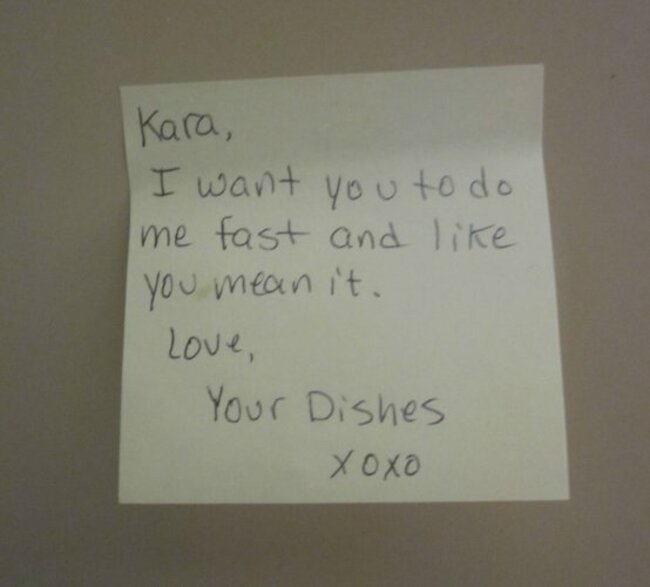 Kara,
I want you to do
me fast and like
you mean it.
Love,
Your Dishes
xoxo